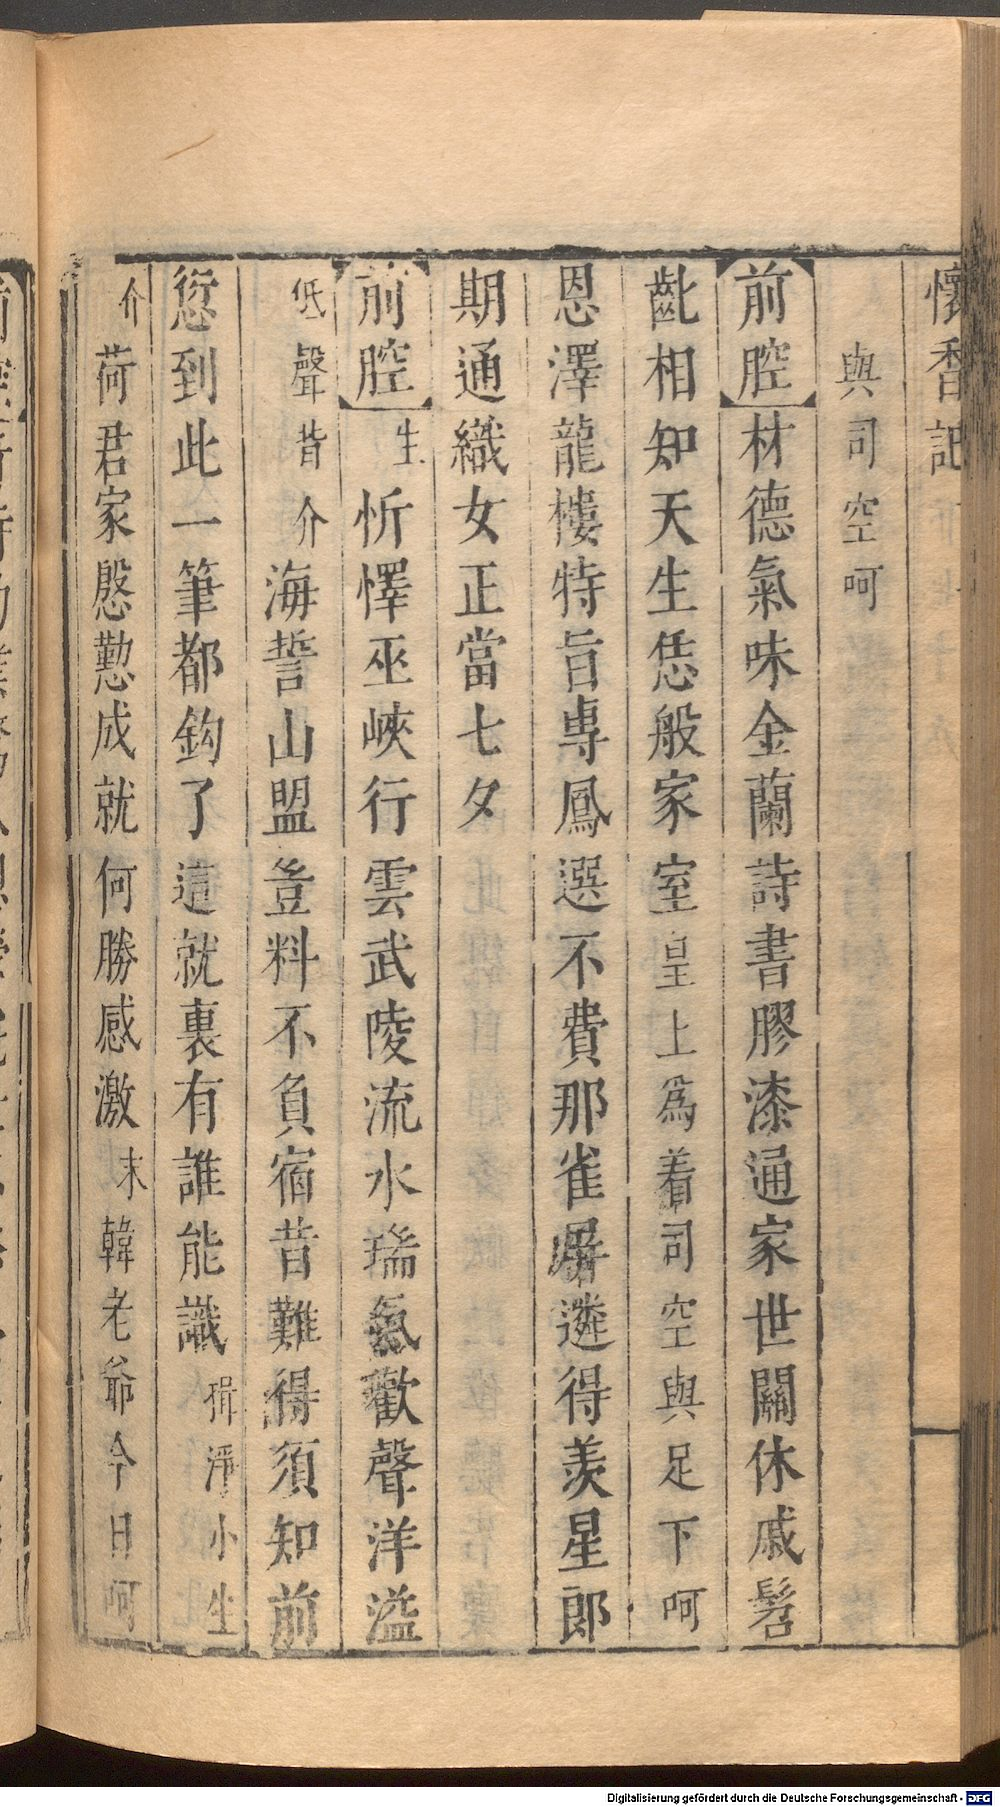 懷香記
與司空呵
前腔 材德氣味金蘭詩書膠漆通家世關休戚髫
齔相知天生恁般家室皇上爲着司空與足下呵
恩澤龍樓特旨專鳳選不費那雀屏遴得羨星郎
期通織女正當七夕
前腔 生 忻懌巫峽行雲武陵流水瑞氣歡聲洋溢
低聲背介海誓山盟豈料不負宿昔難得須知前
愆到此一筆都鈎了這就裏有誰能識揖淨小生
介荷君家慇懃成就何勝感激末韓老爺今日呵
Digitalisierung gefördert durch die Deutsche Forschungsgemeinschaft - DFG